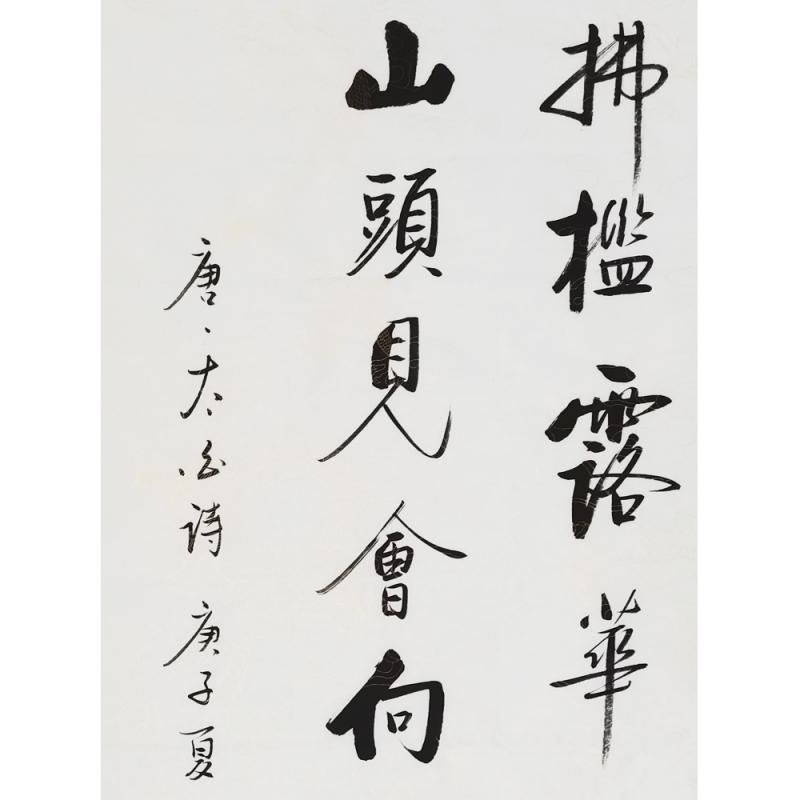 拂檻露華
山頭見會向
唐、太白詩 庚子夏